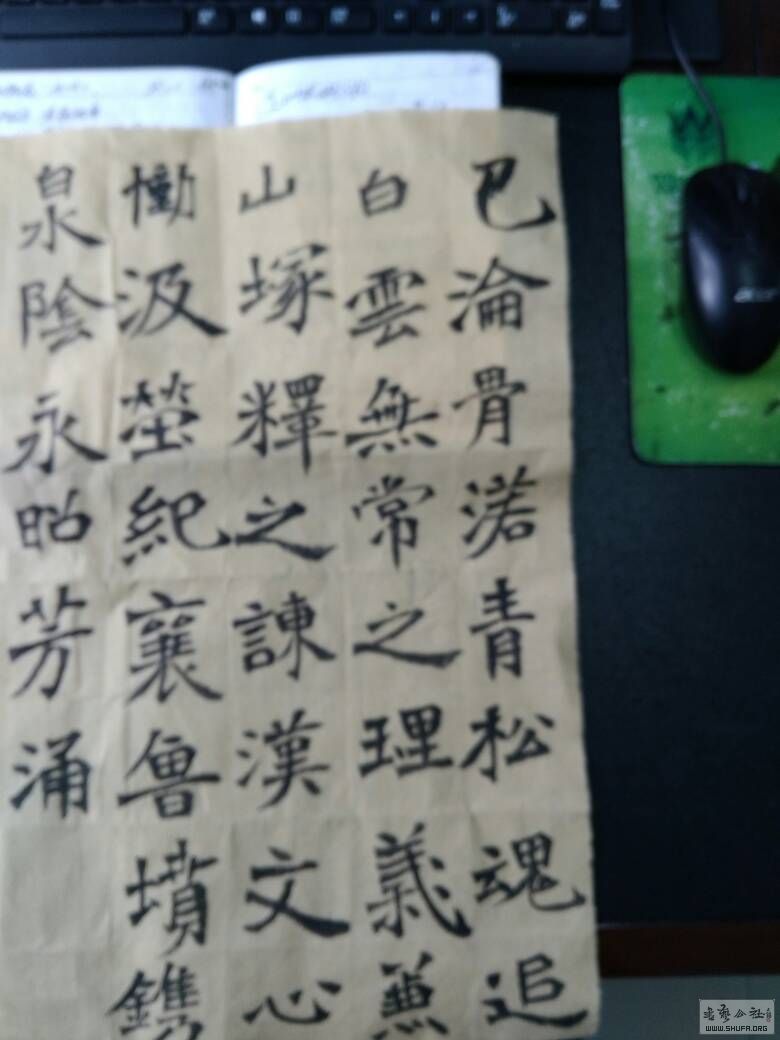 巴淪骨渃青松魂追
白雲無常之理義兼
山塚釋之諫漢文心
慟汲塋紀襄魯墳鐫
泉陰永昭芳涌
acer
書藝公社
WWW.SHUFA.ORG